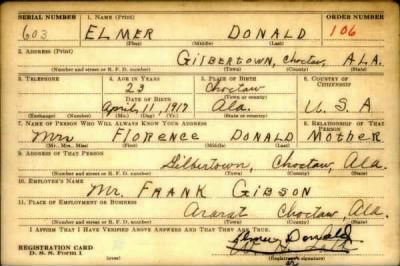 SERIAL NUMBER 1. NAME (Print) ORDER NUMBER
603 ELMER DONALD 106
(First) (Middle) (Last)
2. ADDRESS (Print)
GILBERTOWN, Choctaw, ALA.
(Number and street or R. F. D. number) (Town) (County) (State)
3. TELEPHONE 4. AGE IN YEARS 5. PLACE OF BIRTH 6. COUNTRY OF CITIZENSHIP
23 Choctaw
DATE OF BIRTH (Town or county)
April 11, 1917 Ala. U. S. A
(Exchange) (Number) (Mo.) (Day) (Yr.) (State or country)
7. NAME OF PERSON WHO WILL ALWAYS KNOW YOUR ADDRESS 8. RELATIONSHIP OF THAT PERSON
Mrs FLORENCE DONALD Mother
(Mr., Mrs., Miss) (First) (Middle) (Last)
9. ADDRESS OF THAT PERSON
Gilbertown, Choctaw, Ala.
(Number and street or R. F. D. number) (Town) (County) (State)
10. EMPLOYER'S NAME
Mr. FRANK GIBSON
11. PLACE OF EMPLOYMENT OR BUSINESS
Ararat Choctaw, Ala.
(Number and street or R. F. D. number) (Town) (County) (State)
I AFFIRM THAT I HAVE VERIFIED ABOVE ANSWERS AND THAT THEY ARE TRUE.
Elmer Donald
REGISTRATION CARD
D. S. S. Form 1